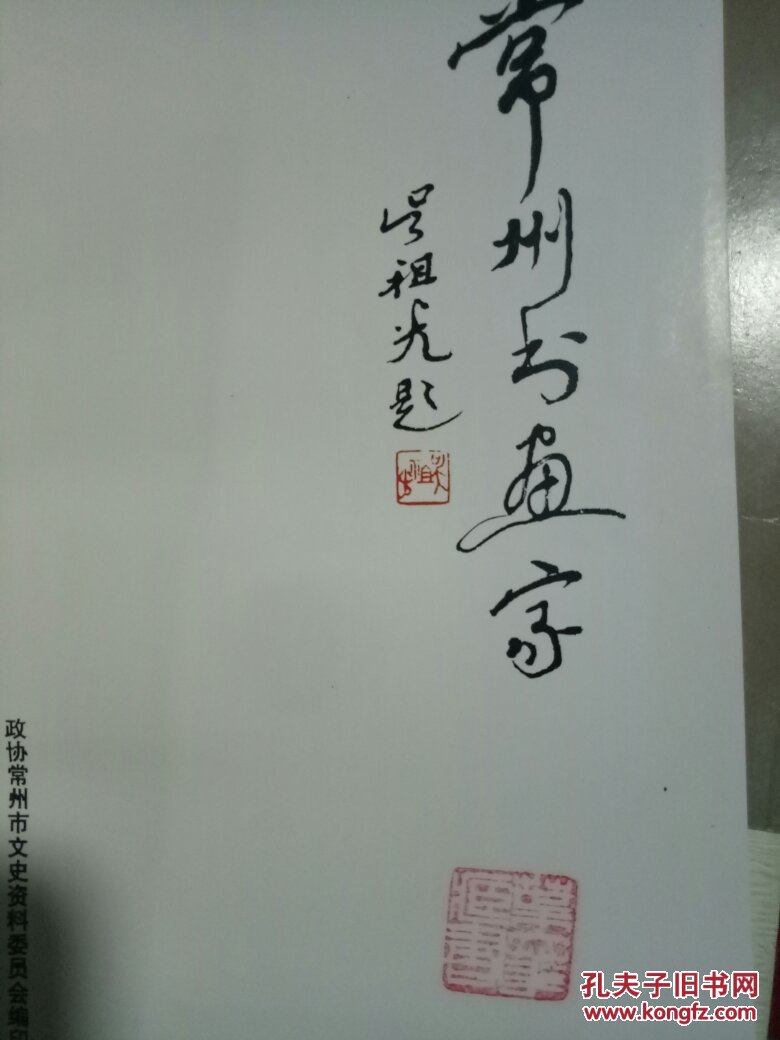 常州书画家
吴祖光题
政协常州市文史资料委员会编印
孔夫子旧书网
www.kongfz.com